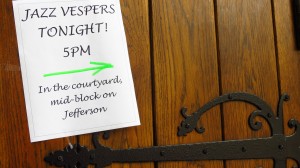 JAZZ VESPERS
TONIGHT!
5PM
In the courtyard,
mid-block on
Jefferson